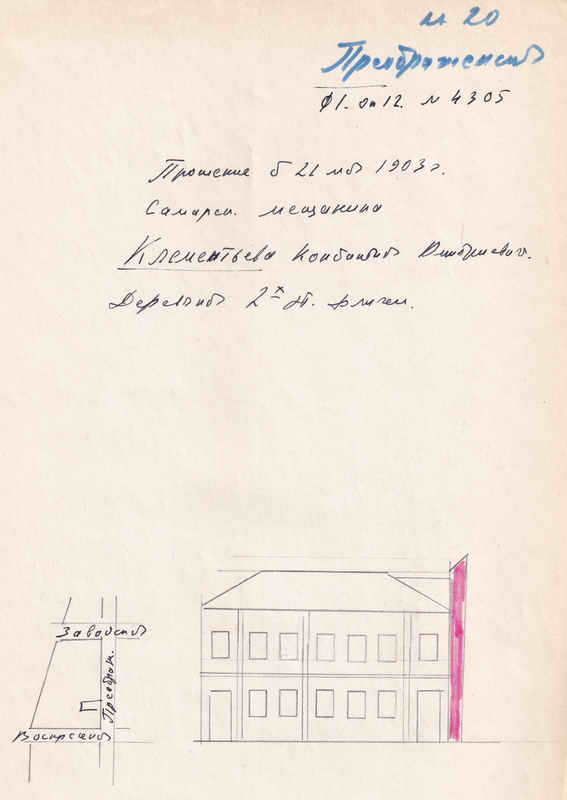 м 20
Преображенск
Ф1. оп12. N 4305
Прошение б 21 мая 1903 г.
Самарск. мещанина
Клементьева Константина Дмитриевич.
Деревян 2х эт. флигел.
Заводск
Преображ.
Воскресенск